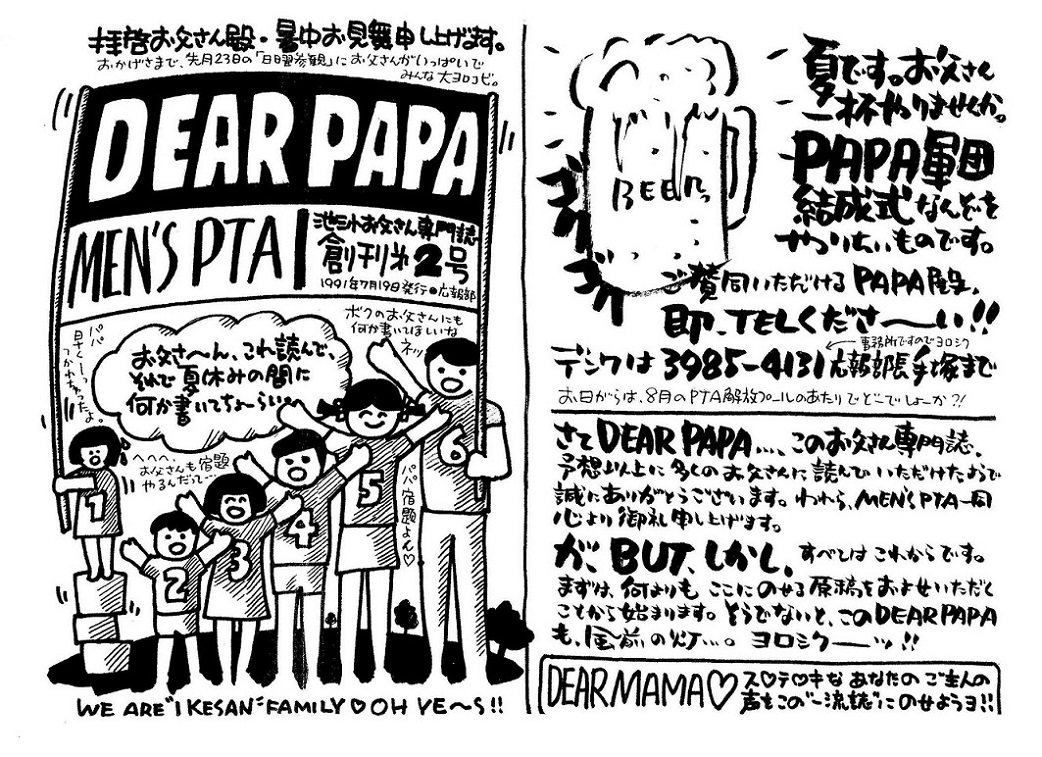 拝啓お父さん殿・暑中お見舞申し上げます。
おかげさまで、先月23日の「日曜参観」にお父さんがいっぱいで
みんな大ヨロコビ。
DEAR PAPA
MEN'S PTA
池三小お父さん専門誌
創刊第2号
1991年7月19日発行●広報部
ボクのお父さんにも
何か書いてほしいね
ネッ
パパ
早くーっ
つかれちゃったよ。
お父さ〜ん、これ読んで、
それで夏休みの間に
何か書いてちょーらい。
へへへ、
お父さんも宿題
やるんだって…
パパ宿題よん♡
1
2
3
4
5
6
WE ARE "IKESAN" FAMILY♡OH YE〜S!!
BEER
ゴクッ
ゴクッ
夏です。お父さん
一杯やりませんか。
PAPA軍団
結成式なんぞを
やりたいものです。
ご賛同いただけるPAPA殿、
即、TELくださ〜い!!
事務所ですのでヨロシク
デンワは3985-4131広報部長手塚まで
お日がらは、8月のPTA解放プールのあたりでどーでしょーか?!
さてDEAR PAPA…、このお父さん専門誌、
予想以上に多くのお父さんに読んでいただけたようで
誠にありがとうございます。われら、MEN'S PTA一同
心より御礼申し上げます。
が、BUT、しかし、すべてはこれからです。
まずは、何よりもここにのせる原稿をおよせいただく
ことから始まります。そうでないと、このDEAR PAPA
も、風前の灯…。ヨロシクーーッ!!
DEAR MAMA♡
ス♡テ♡キなあなたのご主人の
声をこの"一流誌"にのせようヨ!!